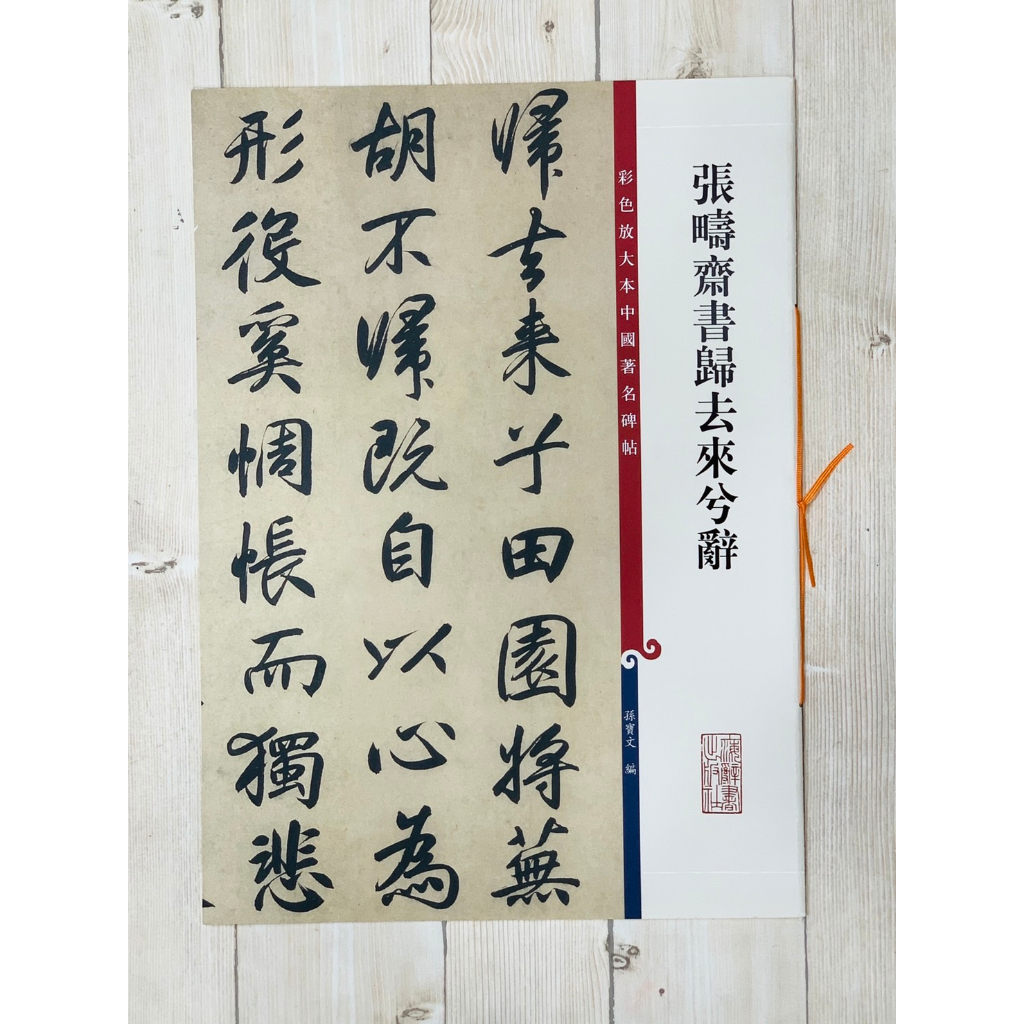 張疇齋書歸去來兮辭
上海辭書出版社
彩色放大本中國著名碑帖
孫寶文 編
歸去来兮田園將蕪
胡不歸既自以心為
形役奚惆悵而獨悲